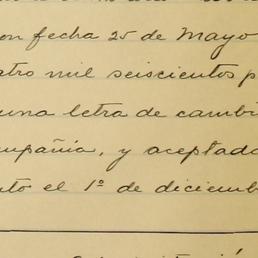 on fecha 25 de Mayo
atro mil seiscientos p
una letra de cambi
mpañia, y aceptad
nto el 1º de diciemb